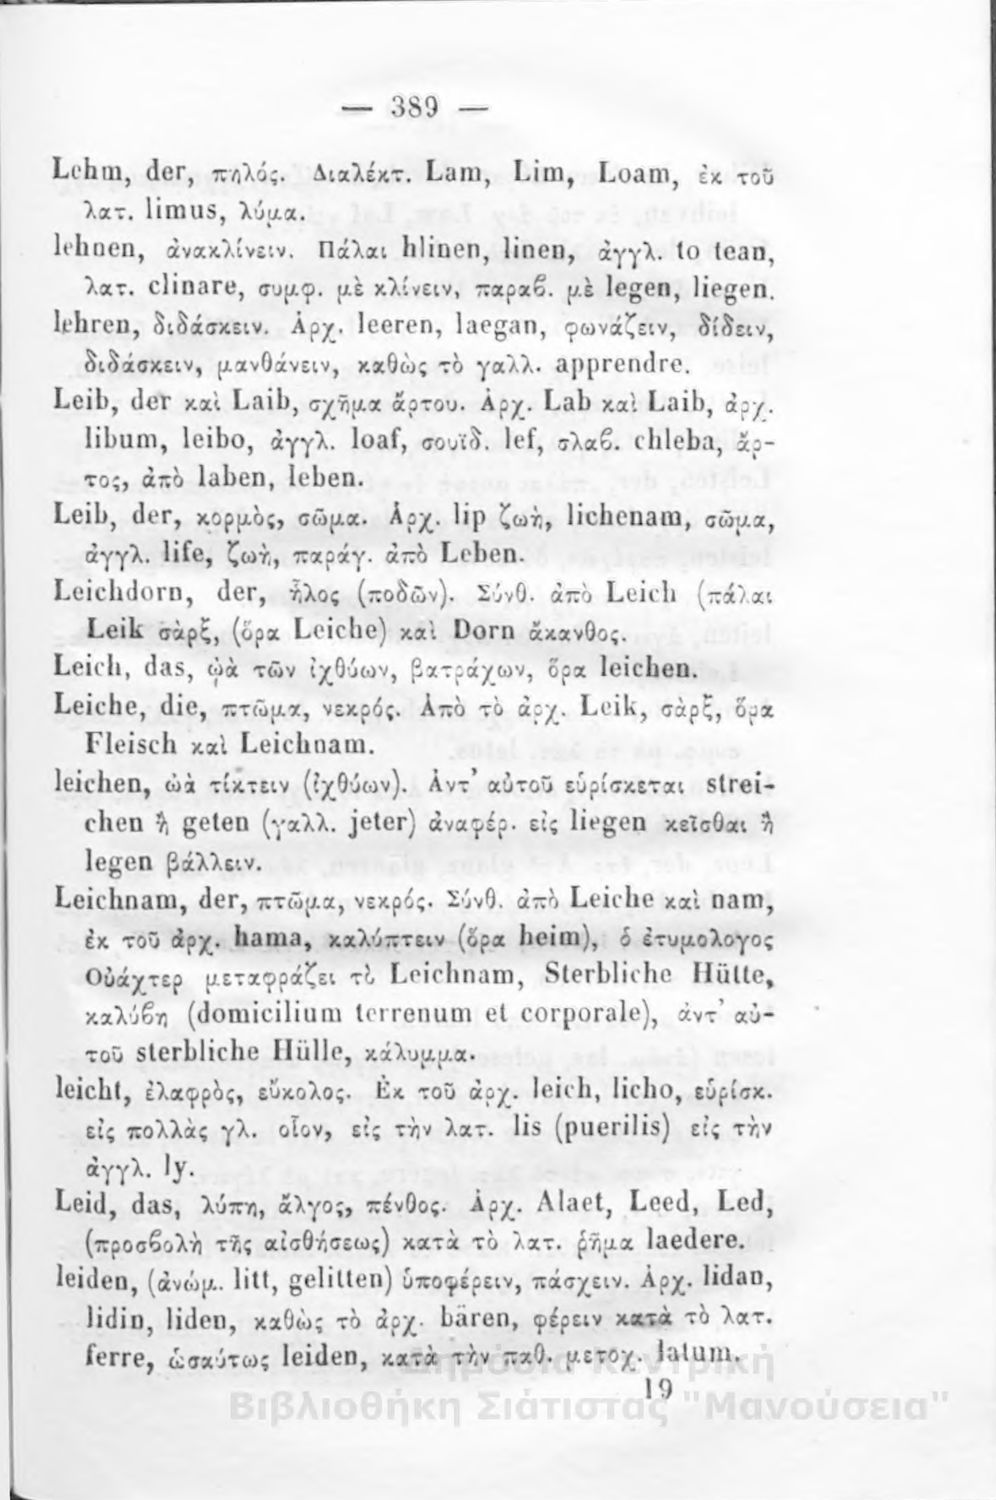 — 389 —
Lehm, der, πηλός. Διαλέκτ. Lam, Lim, Loam, ἐκ τοῦ
λατ. limus, λύμα.
lehnen, ἀνακλίνειν. Πάλαι hlinen, linen, ἀγγλ. to lean,
λατ. clinare, συμφ. μὲ κλίνειν, παραβ. μὲ legen, liegen.
lehren, διδάσκειν. Ἀρχ. leeren, laegan, φωνάζειν, δίδειν,
διδάσκειν, μανθάνειν, καθὼς τὸ γαλλ. apprendre.
Leib, der καὶ Laib, σχῆμα ἄρτου. Ἀρχ. Lab καὶ Laib, ἀρχ.
libum, leibo, ἀγγλ. loaf, σουϊδ. lef, σλαβ. chleba, ἄρ-
τος, ἀπὸ laben, leben.
Leib, der, κορμὸς, σῶμα. Ἀρχ. lip ζωὴ, lichenam, σῶμα,
ἀγγλ. life, ζωὴ, παράγ. ἀπὸ Leben.
Leichdorn, der, ἧλος (ποδῶν). Σύνθ. ἀπὸ Leich (πάλαι
Leik σὰρξ, (ὅρα Leiche) καὶ Dorn ἄκανθος.
Leich, das, ᾠὰ τῶν ἰχθύων, βατράχων, ὅρα leichen.
Leiche, die, πτῶμα, νεκρός. Ἀπὸ τὸ ἀρχ. Leik, σὰρξ, ὅρα
Fleisch καὶ Leichnam.
leichen, ὠὰ τίκτειν (ἰχθύων). Ἀντ' αὐτοῦ εὑρίσκεται strei-
chen ἢ geten (γαλλ. jeter) ἀναφέρ. εἰς liegen κεῖσθαι ἢ
legen βάλλειν.
Leichnam, der, πτῶμα, νεκρός. Σύνθ. ἀπὸ Leiche καὶ nam,
ἐκ τοῦ ἀρχ. hama, καλύπτειν (ὅρα heim), ὁ ἐτυμολογος
Οὐάχτερ μεταφράζει τὸ Leichnam, Sterbliche Hütte,
καλύβη (domicilium terrenum et corporale), ἀντ' αὐ-
τοῦ sterbliche Hülle, κάλυμμα.
leicht, ἐλαφρὸς, εὔκολος. Ἐκ τοῦ ἀρχ. leich, licho, εὑρίσκ.
εἰς πολλὰς γλ. οἷον, εἰς τὴν λατ. lis (puerilis) εἰς τὴν
ἀγγλ. ly.
Leid, das, λύπη, ἄλγος, πένθος. Ἀρχ. Alaet, Leed, Led,
(προσβολὴ τῆς αἰσθήσεως) κατὰ τὸ λατ. ῥῆμα laedere.
leiden, (ἀνώμ. litt, gelitten) ὑποφέρειν, πάσχειν. Ἀρχ. lidan,
lidin, liden, καθὼς τὸ ἀρχ. bären, φέρειν κατὰ τὸ λατ.
ferre, ὡσαύτως leiden, κατὰ τὴν παθ. μετοχ. latum.
19
Δημόσια Κεντρική
Βιβλιοθήκη Σιάτιστας "Μανούσεια"